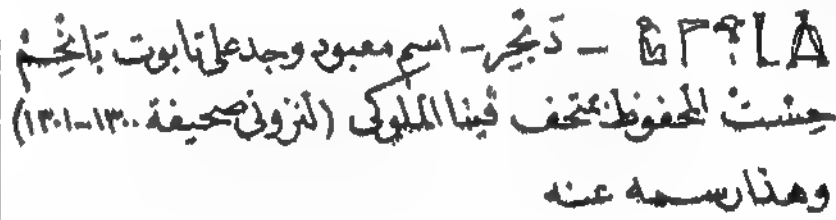 – دَنْجِر – اسم معبود وجد على تابوت بَانِحِمْ
حِسْتْ المحفوظ بمتحف ڤينا الملوكى (لنزونى صحيفة ١٣٠٠-١٣٠١)
وهذا رسمه عنه